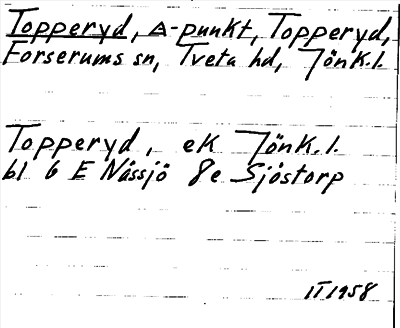 Topperyd, △-punkt, Topperyd,
Forserums sn, Tveta hd, JönK.l.
Topperyd, eK JönK.l.
bl 6 E Nässjö 8e Sjöstorp
II 1958